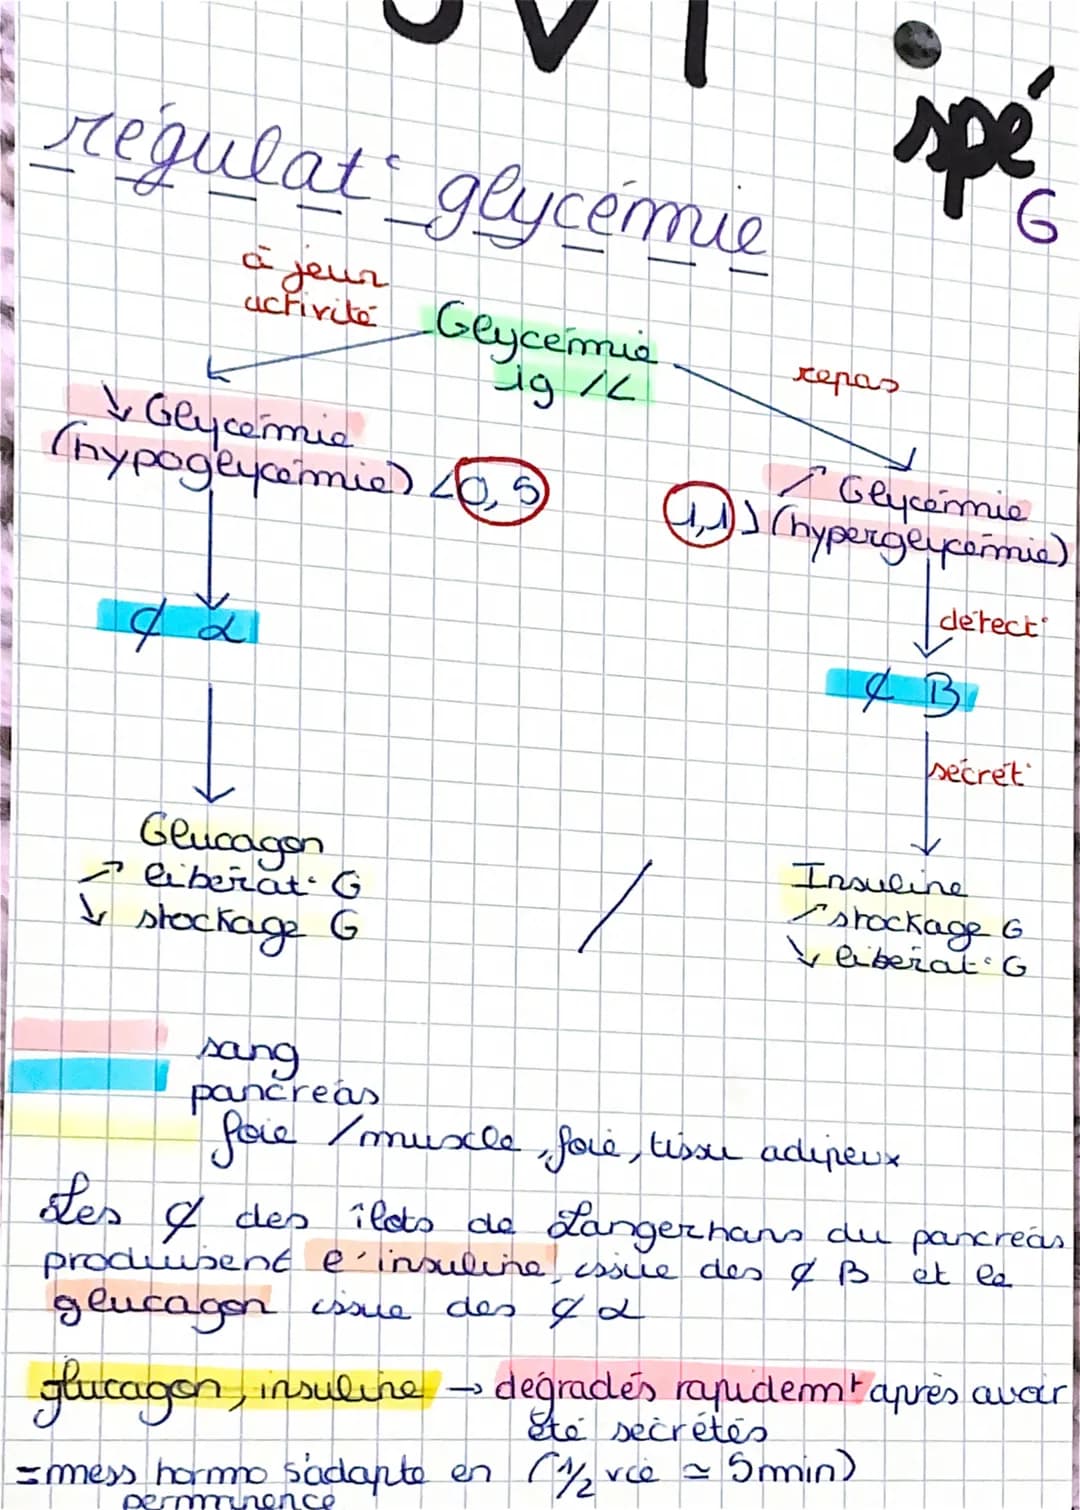 SVT
spé
G
régulat° glycémie
à jeun
activité
Glycémie
1g /L
repas
↘ Glycémie
(hypoglycémie) < 0,5
↗ Glycémie
1,1 > (hyperglycémie)
¢ α
détect°
¢ B
sécrét°
Glucagon
↗ libérat° G
↘ stockage G
/
Insuline
↗ stockage G
↘ libérat° G
sang
pancréas
foie / muscle, foie, tissu adipeux
Les ¢ des îlots de Langerhans du pancréas
produisent l'insuline, issue des ¢ B et le
glucagon issue des ¢ α
glucagon, insuline → dégradés rapidemt après avoir
été sécrétés
= mess hormo s'adapte en (1/2 vie ≃ 5min)
permanence